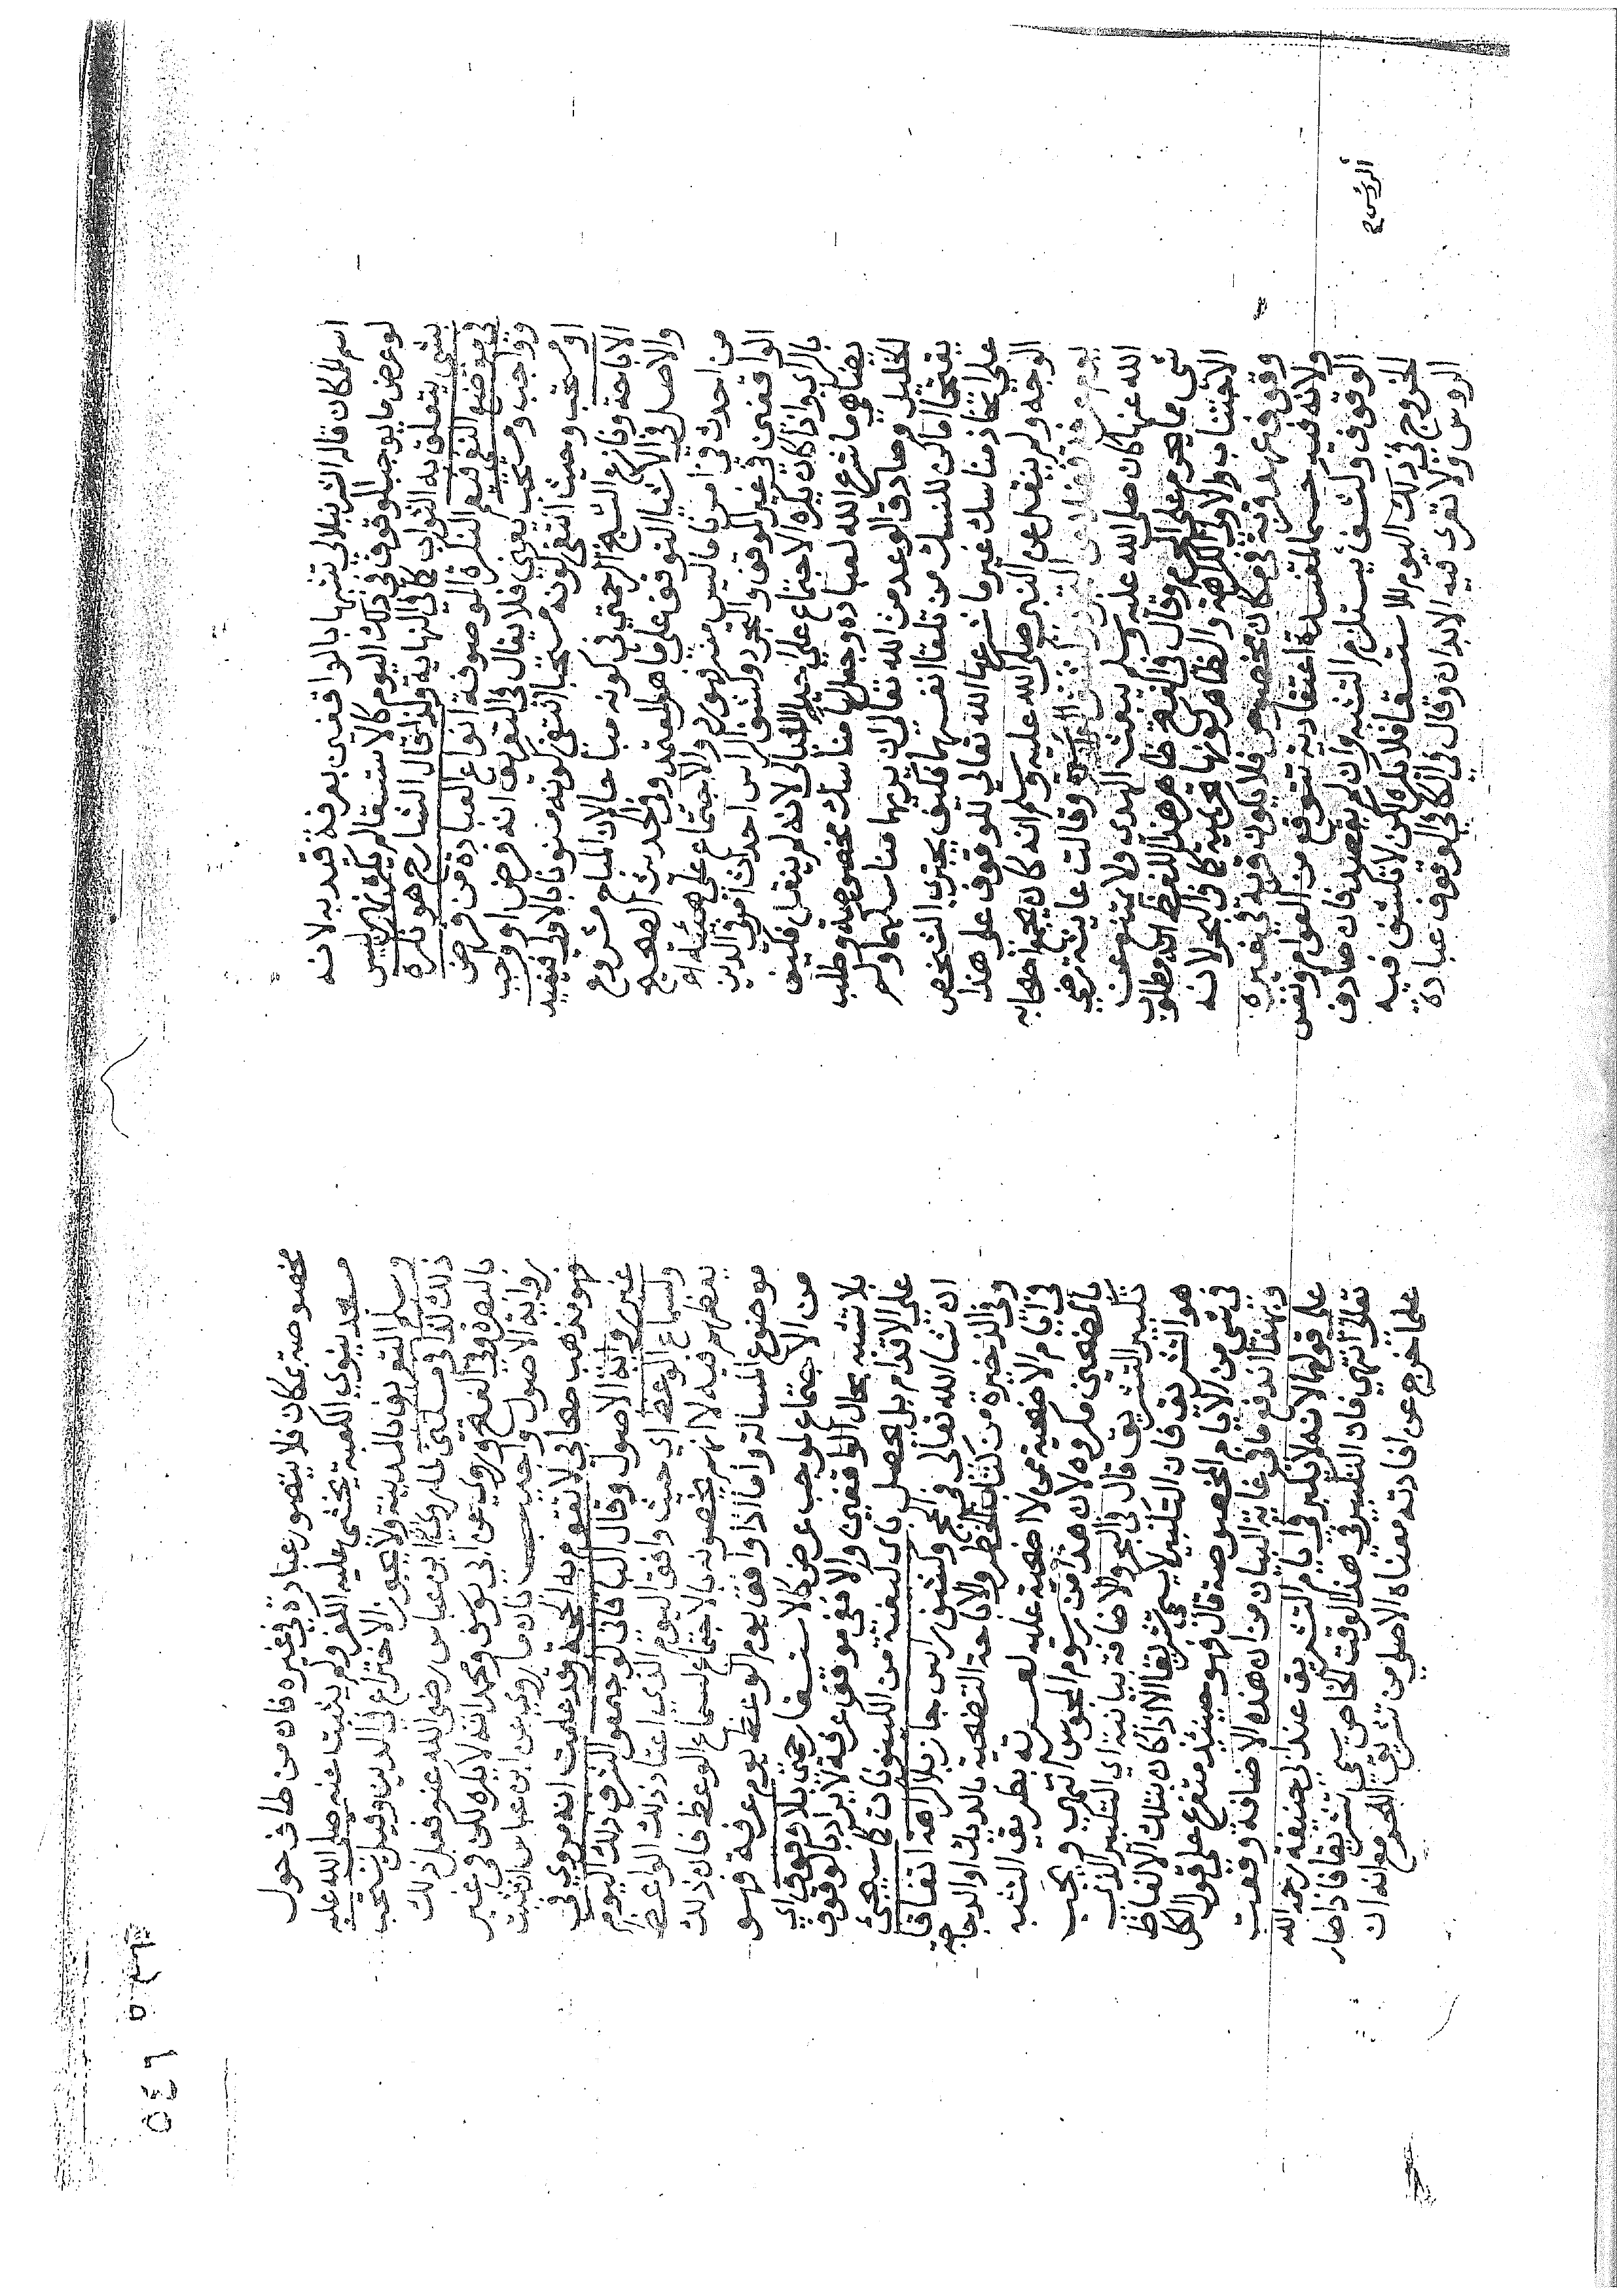 اسم المكان قاله الشرنبلالي تشبها بالواقفين بعرفة قيد به لانه
لو عرض ما يوجب الوقوف في ذلك اليوم كالاستسقا لم يكره نهر ليس
بشي يتعلق به الثواب كما في النهاية ولذا قال الشارح هو نكرة
في موضع النفي فتعم النكرة الموصوفة انواع العبادة من فرض
وواجب ومستحب يعني فلا يقال في التعريف انه فرض او واجب
او مستحب وحيث انتفى كونه مستحبا انتفى كونه مسنونا بالاولى فيفيد
الاباحة ونازع الشيخ الرحمتي في كونه مباحا لان المباح مشروع
والاصل في الاشيا التوقف على ما هو المعتمد وفي الحديث الصحيح
من احدث في امرنا ما ليس منه فهو رد والاجتماع على هيئة
الواقفين في غير الموقف والتجرد وكشف الراس احداث امر في الدين
بالراي واذا كان يكره الاجتماع على احيا الليالي لانه لم ينقل فكيف
يضاهي ما شرع الله لعباده وجعل لها مناسك مخصوصة وطلب
الخليل وصادق الوعد من الله تعالى ان يريهما مناسكهما ولم
يقتحما اماكن للنسك من تلقا انفسهما فكيف يجتري الشخص
على اتخاذ مناسك غير ما شرعها الله تعالى للوقوف على هذا
الوجه ولم ينقل عن النبي صلى الله عليه وسلم انه كان يجمع اصحابه
يوم عرفة فضلا عن التجرد وكشف الروس وقالت عايشة رضي
الله عنها كان صلى الله عليه وسلم يبعث الهدي ولا يمتنع عن
شي مما يحرم على المحرم وقال في الفتح ظاهر هذا اللفظ انه مطلوب
الاجتناب والاولى الكراهة والظاهر كونها تحريمية كما في البحر لانه
وقوف عهد قربة في مكان مخصوص فلا يكون قربة في غيره
ولانه فيه حسما لمفسدة اعتقادية تتوقع من العوام ونفس
الوقوف وكشف يستلزم التشبه وان لم يقصد فان صادف
الخروج في ذلك اليوم للاستسقا فلا يكره لكن لا تكشف فيه
الروس ولا تعرى فيه الابدان وقال في الكافي الوقوف عبادة
مخصوصة بمكان فلا يتصور عبادة في غيره فان من طاف حول
مسجد ينوي الكعبة يخشى عليه الكفر ولم يثبت عنه صلى الله عليه
وسلم التعريف بالمدينة ولا يجوز الاختراع في الدين وقيل يستحب
ذلك كذا في مسكين لما روي ان ابن عباس رضي الله عنه فعل ذلك
بالبصرة وفي الفتح وروي عن ابي يوسف ومحمد انه لا يكره لكن في غير
رواية الاصول واجيب بان ما روي عن ابن عباس ان ثبت
فهو مذهب صحابي لا تقوم به الحجة وقد علمت انه مروي في
غير رواية الاصول وقال الباقاني لو اجتمعوا لشرف ذلك اليوم
ولسماع الوعظ اي حيث وافق اليوم الذي اعتاد ذلك الواعظ
يعظهم فيه لا انهم يخصونه بالاجتماع لسماع الوعظ فان ذلك
موضوع المسالة واما اذا وافق يوم الوعظ يوم عرفة فهو
من الاجتماع لموجب عرض كالاستسقا رحمتي بلا وقوف اي
بلا تشبه بحال الواقفين والا ففي موقف عرفة لا يراد بالوقوف
على الاقدام بل يحصل باي كيفية من الكينونات كما سيجئ
ان شا الله تعالى في الحج وكشف راس جاز بلا كراهة اتفاقا
وفي الذخيرة من كتاب الحظر والاباحة التضحية بالديك او الدجاجة
في ايام الاضحية ممن لا اضحية عليه لعسرته بطريق التشبه
بالمضحين مكروه لان هذا من رسوم المجوس انتهى ويجب
تكبير التشريق قال في البحر والاضافة بيانية اي التكبير الذي
هو التشريق فان التكبير لا يسمى تشريقا الا اذا كان بتلك الالفاظ
في شي من الايام المخصوصة قال فهو حينئذ متفرع على قول الكل
وبهذا اندفع ما في غاية البيان من ان هذه الاضافة وقعت
على قولهما لانه لا تكبير في ايام التشريق عند ابي حنيفة رحمه الله
تعالى انتهى فان التكبير في هذا الوقت الخاص يسمى تشريقا فاذا صار
علما خرج عن افادته معناه الاصلي من تشريق اللحم مع انه ان